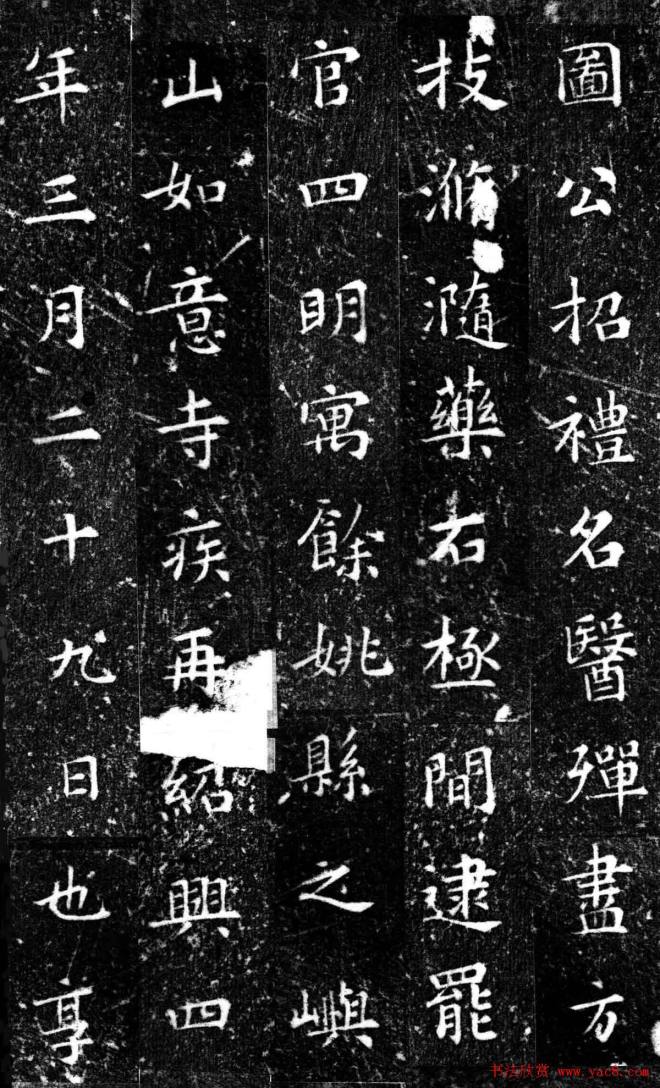 圖公招禮名醫殫盡方
技滫瀡藥石極間逮罷
官四明寓餘姚縣之嶼
山如意寺疾再紹興四
年三月二十九日也享
书法欣赏 www.yac8.com